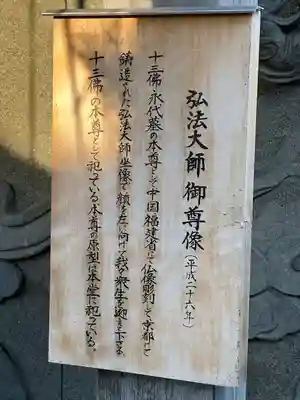 弘法大師御尊像(平成二十六年)
十三佛永代墓の本尊として中国福建省にて仏像彫刻して京都にて
鋳造された弘法大師坐像で顔を左に向け我が衆生を迎え下さる。
十三佛の本尊として祀っている。本尊の原型は本坐に祀っている。